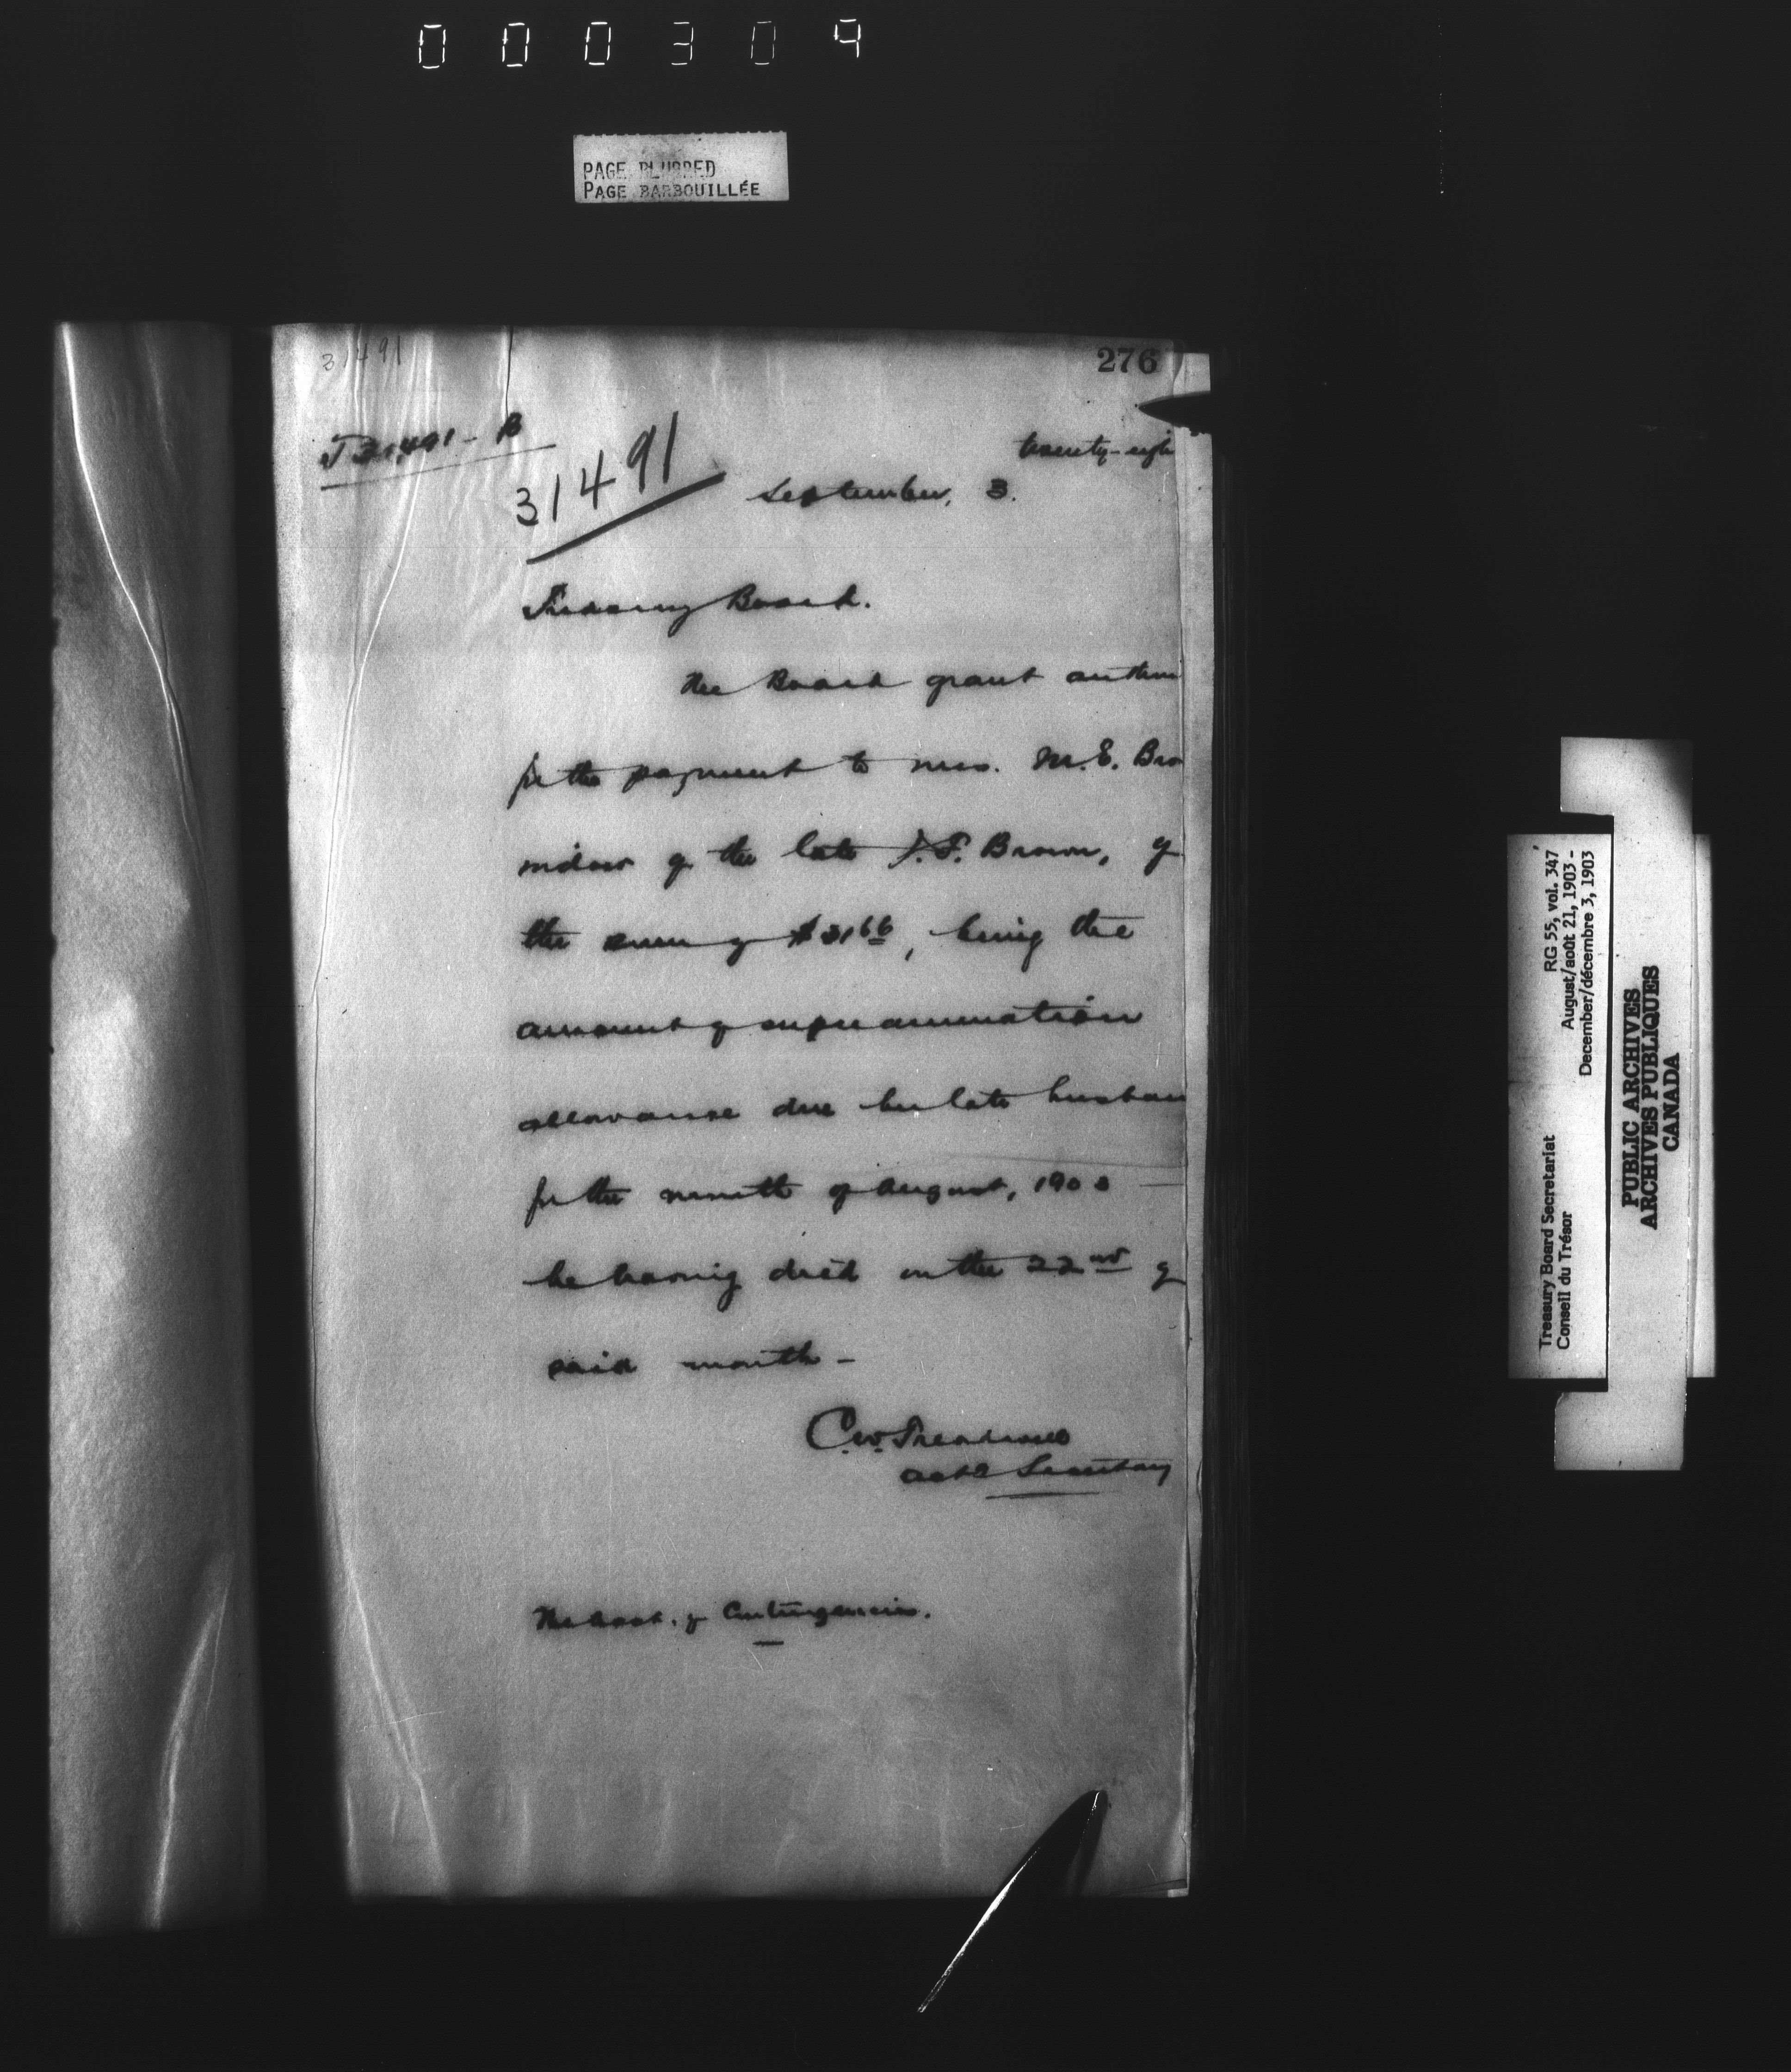 000309
PAGE BLURRED
PAGE BARBOUILLÉE
31491
276
T 31,491 - B
31491
twenty-eigh
September, 3.
Treasury Board.
The Board grant autho
for the payment to Mrs. M.E. Bro
widow of the late J.F. Brown, of
the sum of $31 66, being the
amount of superannuation
allowance due her late husban
for the month of August, 1903 —
he having died on the 22nd of
said month -
C.W.
Actg Secretary
The Acct. of Contingencies.
Treasury Board Secretariat RG 55, vol. 347
Conseil du Trésor August/août 21, 1903 -
December/décembre 3, 1903
PUBLIC ARCHIVES
ARCHIVES PUBLIQUES
CANADA